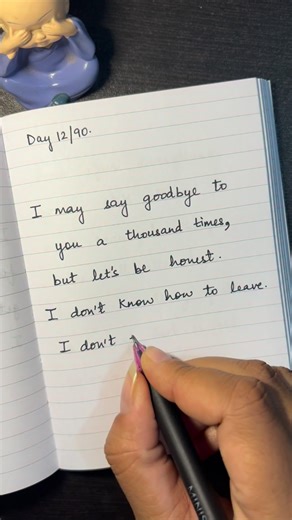 Day 12/90.
I may say goodbye to
you a thousand times,
but let's be honest.
I don't know how to leave.
I don't
MINIS